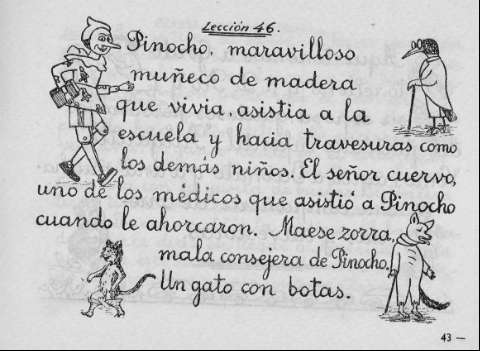 Lección 46.
Pinocho, maravilloso
muñeco de madera
que vivia, asistia a la
escuela y hacia travesuras como
los demás niños. El señor cuervo,
uno de los médicos que asistió a Pinocho
cuando le ahorcaron. Maese zorra,
mala consejera de Pinocho,
Un gato con botas.
43 —